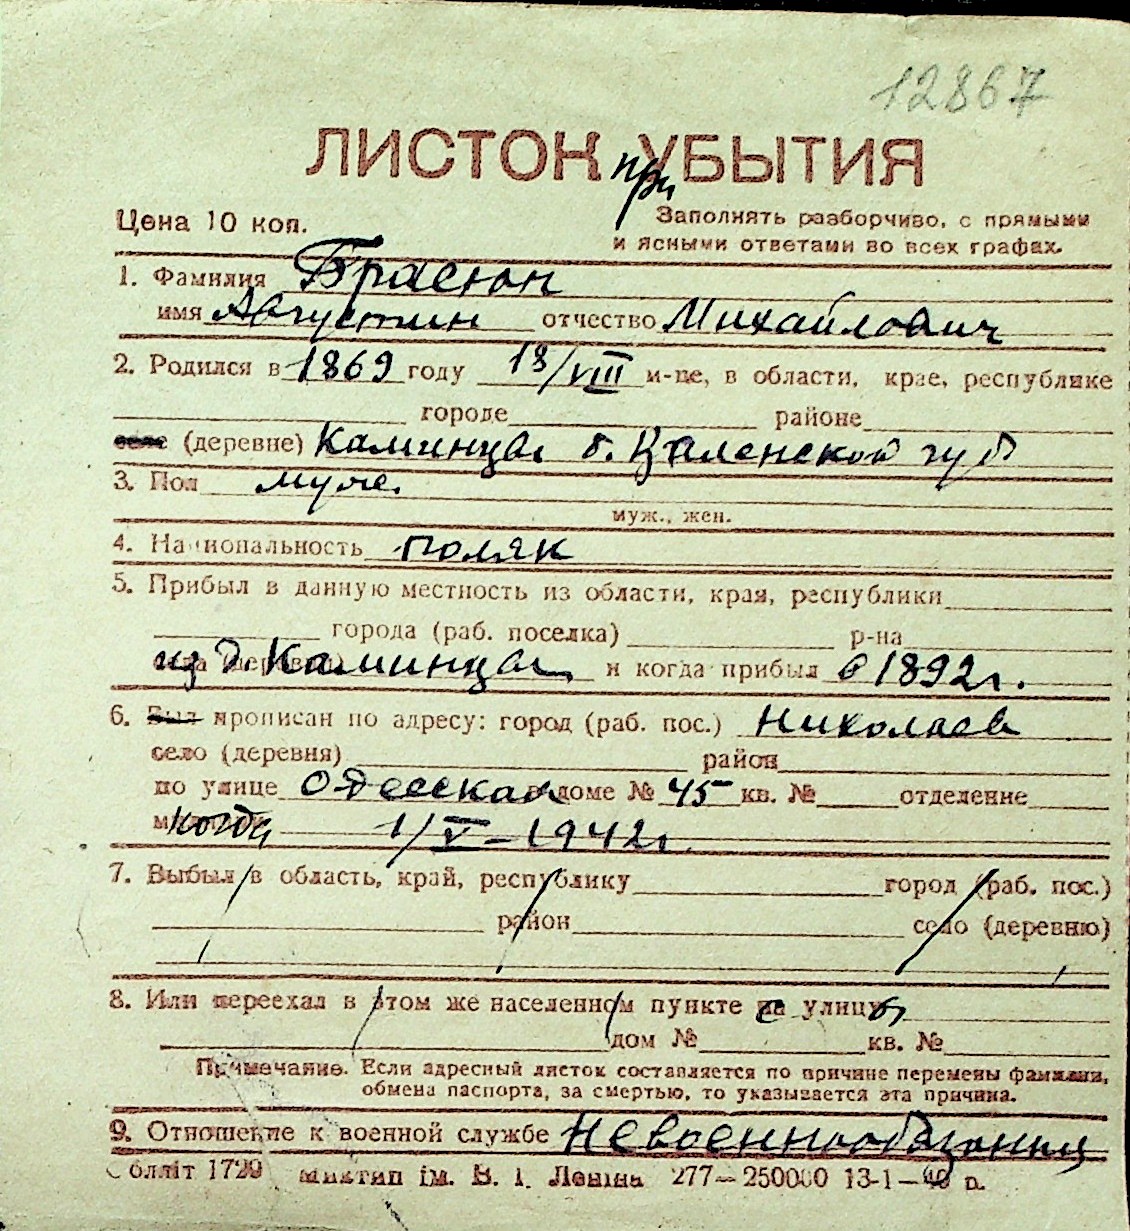 12867
ЛИСТОК при УБЫТИЯ
Цена 10 коп.
Заполнять разборчиво, с прямыми
и ясными ответами во всех графах.
1. Фамилия Брасюн
имя Августин отчество Михайлович
2. Родился в 1869 году 18/VIII м-це, в области, крае, республике
городе районе
селе (деревне) Каминцы б. Виленской губ
3. Пол муж.
муж., жен.
4. Национальность поляк
5. Прибыл в данную местность из области, края, республики
города (раб. поселка) р-на
из д. Каминцы и когда прибыл в 1892 г.
6. Был прописан по адресу: город (раб. пос.) Николаев
село (деревня) район
по улице Одесская доме № 45 кв. № отделение
когда 1/V-1942 г.
7. Выбыл в область, край, республику город (раб. пос.)
район село (деревню)
8. Или переехал в этом же населенном пункте с улицы
дом № кв. №
Примечание. Если адресный листок составляется по причине перемены фамилии,
обмена паспорта, за смертью, то указывается эта причина.
9. Отношение к военной службе Невоеннообязанный
Обллiт 1729 Миктип iм. В. I. Ленiна 277—250000 13-1—40 р.